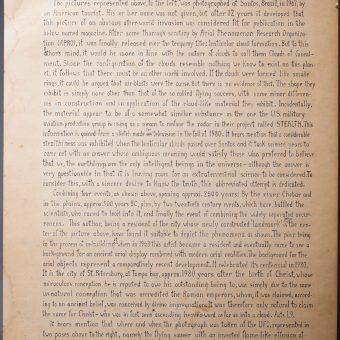 The pictures represented above, to the left, was photographed at Santos, Brazil, in 1967, by
an American tourist. His or her name was not given, but after 12 years it developed that
this picture of an obvious after-world invasion was considered fit for publication in the
below named magazine. After some thorough scrutiny by Aerial Phenomenon Research Organiza-
tion (APRO), it was finally released over the temporary title: lenticular cloud formation. But to this
other's mind, it would be more in line with the nature of clouds to call them Clouds of Conceal-
ment. Since the configuration of the clouds resemble nothing we know to exist on this plan-
et, it follows that there must be an other world involved. If the clouds were formed like smoke
rings, it could be argued that air-blasts were the cause. But there is no evidence of that. The shape they
exhibit is simply none other than that of the so called flying saucers, with some minor differen-
ces in construction and in application of the cloud-like material they exhibit. Incidentally,
the material appear to be of a somewhat similar substance as the one the U.S. military
aviation-productive group is using as a mean to reduce the radar in their project called STEALTH. This
information is gained from a sketch made on television in the fall of 1980. It bears mention that a considerable
stealthiness was exhibited when the lenticular clouds passed over Santos and it took science years to
come out with an answer whose ambiguous meaning would satisfy those who preferred to believe
that we, the earthlings are the only intelligent beings in the universe - although the answer is
very questionable in that it is leaving room for an extraterrestrial science to be considered. To
consider this, with a sincere desire to Know the Truth, this abbreviated attempt is dedicated.
Combining two events as shown above, spacing approx. 2500 years: by the river Chebar and
in the plains, approx. 500 years BC, plus, by two twentieth century events, which have baffled the
scientists, who cared to look into it, and finally the event of combining the widely separated occur-
rences. This author, being a resident of the city whose newly constructed landmark is the cen-
ter of the picture above, have found it suitable to depict the phenomenon as shown. The pier being
in the process of re-building when in 1963 this artist became a resident and eventually came to see a
background for an ancient aerial display combined with modern aerial revelation, the background for the
aerial objects represent a comparatively recent development. It celebrated its centennial in 1980.
It is the city of St. Petersburg, at Tampa bay, approx. 1980 years after the birth of Christ, whose
miraculous conception, he is reputed to owe his outstanding being to, was simply due to the same
unnatural conception that was accredited the Roman emperors, whom, it was claimed, accord-
ing to an ancient belief, was conceived by divine impregnation. It was therefore only natural to claim
the name for Christ - who was in fact seen ascending heavenward so far as into a cloud. Acts 1,9.
It bears mention that where and when the photograph was taken of the UFO, represented in
two poses above to the right, namely the flying saucer with an inverted flame-like effusion of